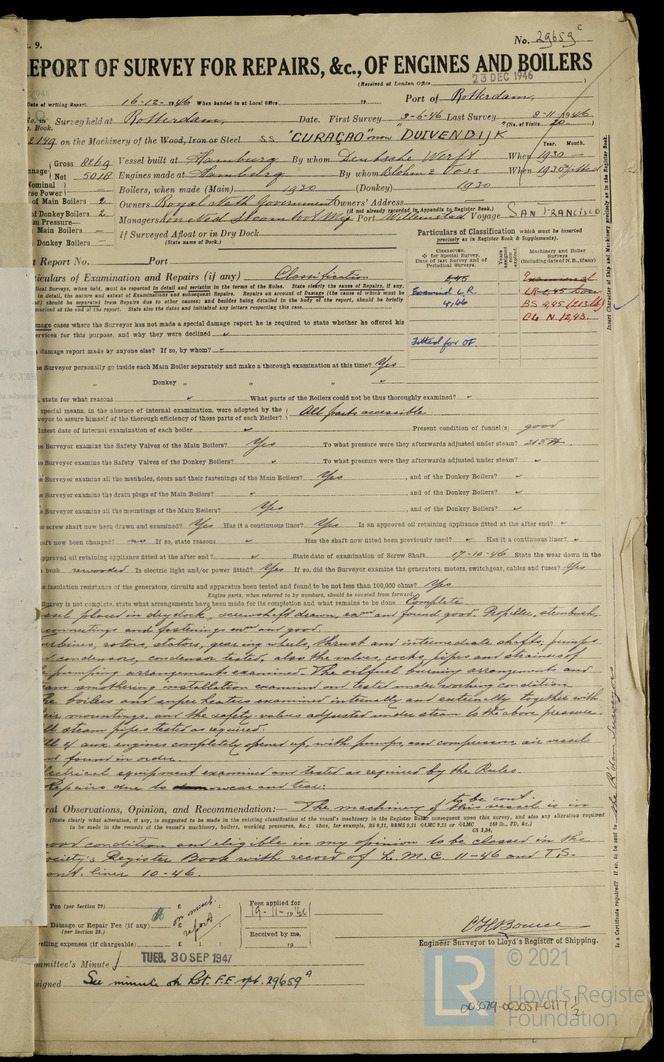 . 9.
No. 29659 c
EPORT OF SURVEY FOR REPAIRS, &c., OF ENGINES AND BOILERS
(Received at London Office 23 DEC 1946 )
Date of writing Report 16-12-1946 When handed in at Local Office 19 Port of Rotterdam
No. in Survey held at Rotterdam, Date. First Survey 3-6-46 Last Survey 8-11-1946
Book.
(No. of Visits 20 )
on the Machinery of the Wood, Iron or Steel SS. "CURAÇAO" now "DUIVENDIJK
Year. Month.
Gross 8869 Vessel built at Hamburg By whom Deutsche Werft When 1930 —
Net 5018 Engines made at Hamburg By whom Blohm & Voss When 1930
Boilers, when made (Main) 1930 (Donkey) 1930
of Main Boilers 2 Owners Royal Neth Government Owners' Address
(if not already recorded in Appendix to Register Book.)
of Donkey Boilers 2 Managers Port Willemstad Voyage SAN FRANCISCO
Main Boilers — If Surveyed Afloat or in Dry Dock
(State name of Dock.)
Donkey Boilers —
Particulars of Classification which must be inserted precisely as in Register Book & Supplements).
t Report No. Port
CHARACTER. ✠ for Special Survey. Date of last Survey and of Periodical Surveys.
Machinery and Boiler Surveys (including dated N.B., if any)
iculars of Examination and Repairs (if any) Classification
Examined L.R.
4,46
BS 2,45
N. 12,43.
Fitted for OF.
damage cases where the Surveyor has not made a special damage report he is required to state whether he offered his
services for this purpose, and why they were declined "
damage report made by anyone else? If so, by whom? "
e Surveyor personally go inside each Main Boiler separately and make a thorough examination at this time? Yes
" Donkey " " " " "
, state for what reasons " What parts of the Boilers could not be thoroughly examined? "
special means, in the absence of internal examination, were adopted by the
veyor to assure himself of the thorough efficiency of those parts of each Boiler? All parts accessible
latest date of internal examination of each boiler " Present condition of funnel(s) good
e Surveyor examine the Safety Valves of the Main Boilers? Yes To what pressure were they afterwards adjusted under steam? 213 #.
e Surveyor examine the Safety Valves of the Donkey Boilers? " To what pressure were they afterwards adjusted under steam? "
e Surveyor examine all the manholes, doors and their fastenings of the Main Boilers? Yes , and of the Donkey Boilers? "
e Surveyor examine the drain plugs of the Main Boilers? " , and of the Donkey Boilers? "
e Surveyor examine all the mountings of the Main Boilers? Yes , and of the Donkey Boilers? "
e screw shaft now been drawn and examined? Yes Has it a continuous liner? Yes Is an approved oil retaining appliance fitted at the after end? "
haft now been changed? no If so, state reasons " Has the shaft now fitted been previously used? " Has it a continuous liner? "
approved oil retaining appliance fitted at the after end? " State date of examination of Screw Shaft 17-10-46 State the wear down in the
bush rewooded Is electric light and/or power fitted? Yes If so, did the Surveyor examine the generators, motors, switchgear, cables and fuses? Yes
insulation resistance of the generators, circuits and apparatus been tested and found to be not less than 100,000 ohms? Yes
Engine parts, when referred to by numbers, should be counted from forward.
Survey is not complete, state what arrangements have been made for its completion and what remains to be done Complete
sel placed in drydock, screwshaft drawn, exd and found good. Propeller, sternbush,
connections and fastenings exd and good.
urbines, rotors, stators, gearing wheels, thrust and intermediate shafts, pumps
d condensers, condenser tested, also the valves, cocks, pipes and strainers of
e pumping arrangements examined. The oilfuel burning arrangements and
eam smothering installation examined and tested under working condition
he boilers and super heaters examined internally and externally together with
eir mountings, and the safety valves adjusted under steam to the above pressure.
ll steam pipes tested as required.
ll of aux engines completely opened up, with pumps and compressor, air vessel
nd found in order.
lectrical equipment examined and tested as required by the Rules.
Repairs due to wear and tear:
to be cont.
ral Observations, Opinion, and Recommendation:— The machinery of this vessel is in
(State clearly what alteration, if any, is suggested to be made in the existing classification of the vessel's machinery in the Register Book consequent upon this survey, and also any alterations required
to be made in the records of the vessel's machinery, boilers, working pressures, &c.; thus, for example,
ood condition and eligible in my opinion to be classed in the
ociety's Register Book with record of L.M.C. 11-46 and T.S.
ont. liner 10-46.
Fee (per Section 29) £ : : Fees applied for
19-11-1946
Damage or Repair Fee (if any) £ : : (per Section 29.)
Received by me,
19
velling expenses (if chargeable) £ : :
Engineer Surveyor to Lloyd's Register of Shipping.
ommittee's Minute TUES. 30 SEP 1947
signed See minute on Rot. F.E. rpt. 29659 a
Is a Certificate required? If so, to be sent to the R'dam Surveyors
Insert Character of Ship and Machinery precisely as in the Register Book.
© 2021
LR
Lloyd's Register
Foundation
003079-003057-0117 1/2